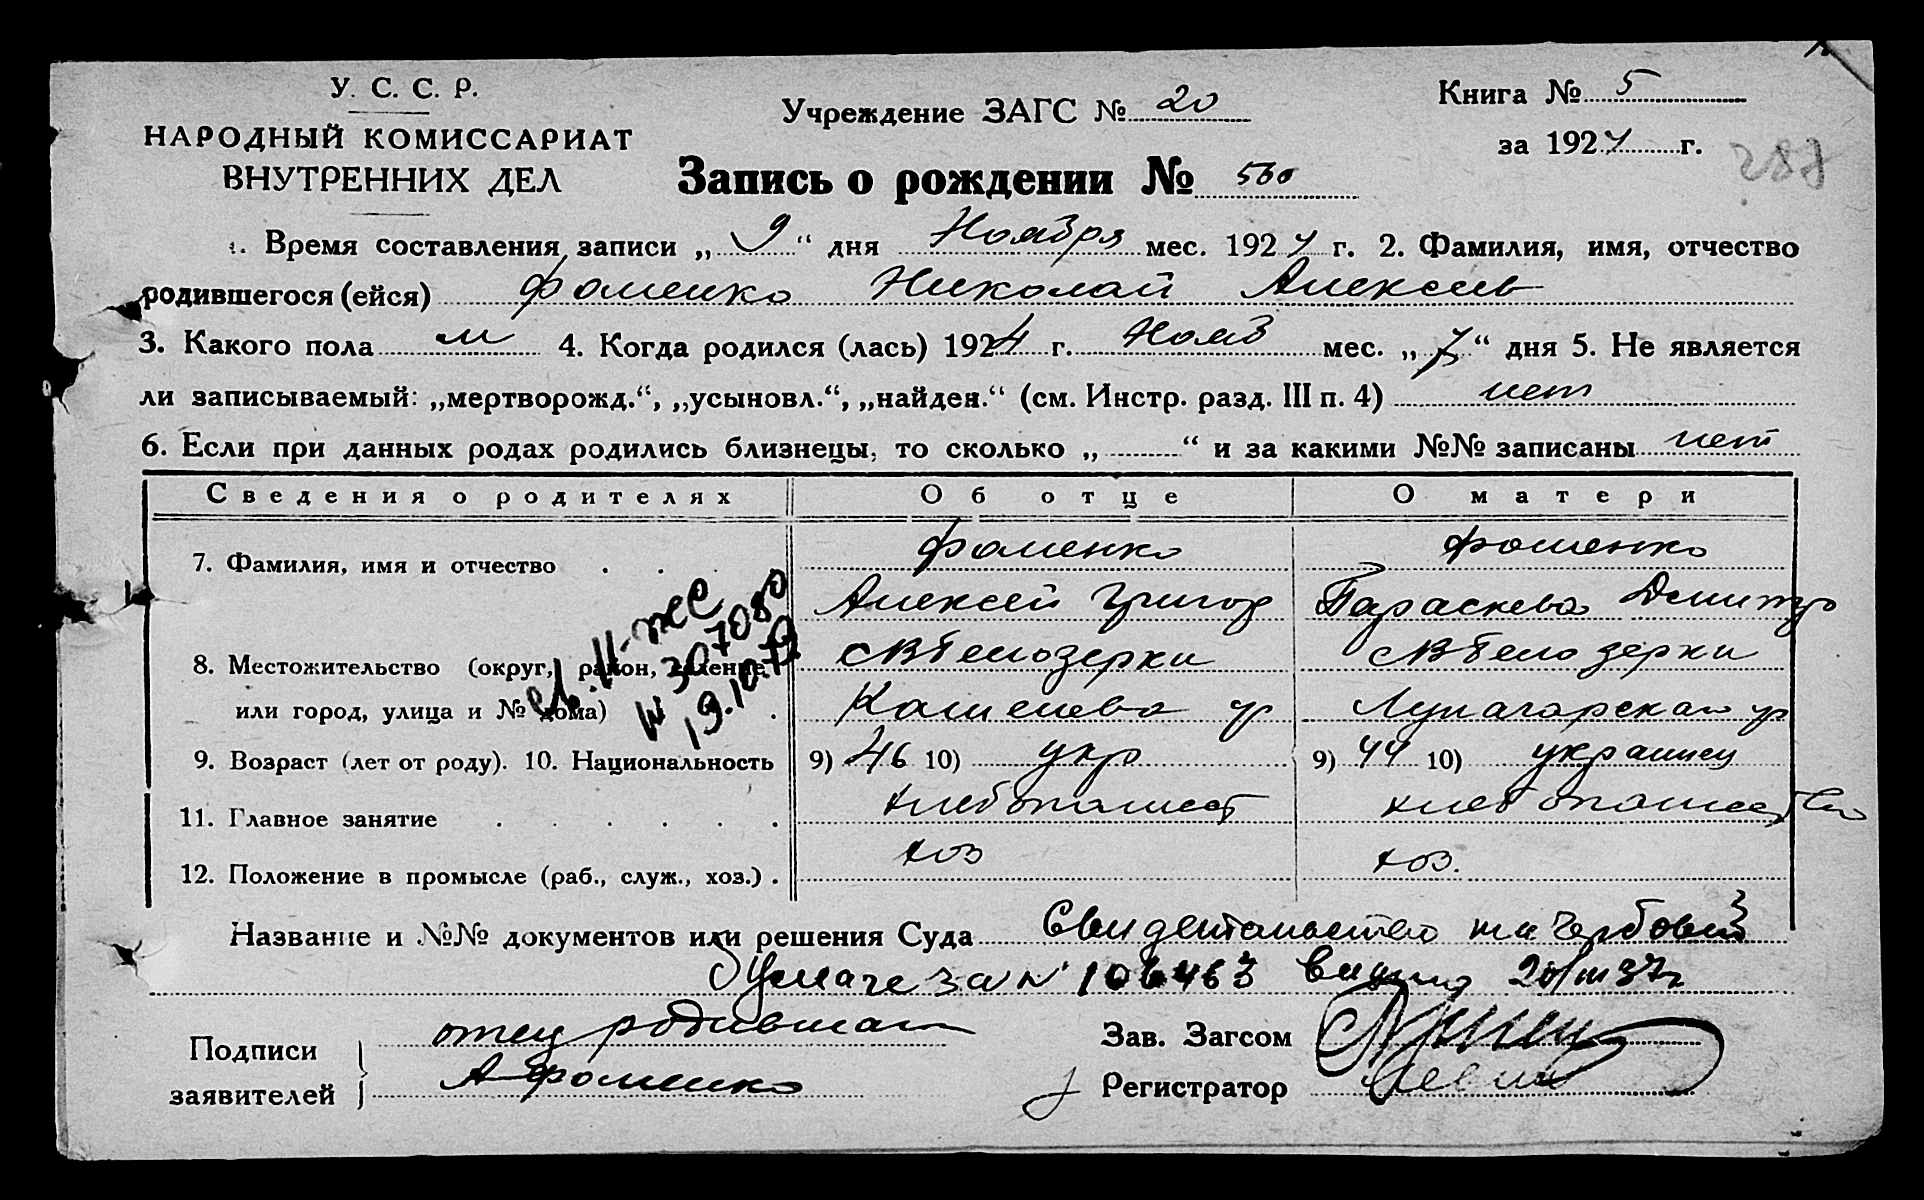 У. С. С. Р.
НАРОДНЫЙ КОМИССАРИАТ
ВНУТРЕННИХ ДЕЛ
Учреждение ЗАГС № 20
Книга № 5
за 1924 г.
287
Запись о рождении № 560
1. Время составления записи „ 9 “ дня Ноября мес. 1924 г. 2. Фамилия, имя, отчество
родившегося (ейся) Фоменко Николай Алексеев
3. Какого пола м 4. Когда родился (лась) 1924 г. Нояб мес. „ 7 “ дня 5. Не является
ли записываемый: „мертворожд.“, „усыновл.“, „найден.“ (см. Инстр. разд. III п. 4) нет
6. Если при данных родах родились близнецы, то сколько „ “ и за какими №№ записаны нет
Сведения о родителях Об отце О матери
7. Фамилия, имя и отчество Фоменко Фоменко
Алексей Григор Параскева Дмитр
8. Местожительство (округ, район, селение, с В Белозерки с В Белозерки
или город, улица и № дома) ул Луначарская ул
№ 307080
19.10.
9. Возраст (лет от роду). 10. Национальность 9) 46 10) укр 9) 44 10) украинец
11. Главное занятие хлебопашест хлебопашество
12. Положение в промысле (раб., служ., хоз.) хоз хоз.
Название и №№ документов или решения Суда Свидетельство на гербовой
бумаге за № 106463 20/III 37г
Подписи заявителей отец родившая
А Фоменко
Зав. Загсом
Регистратор